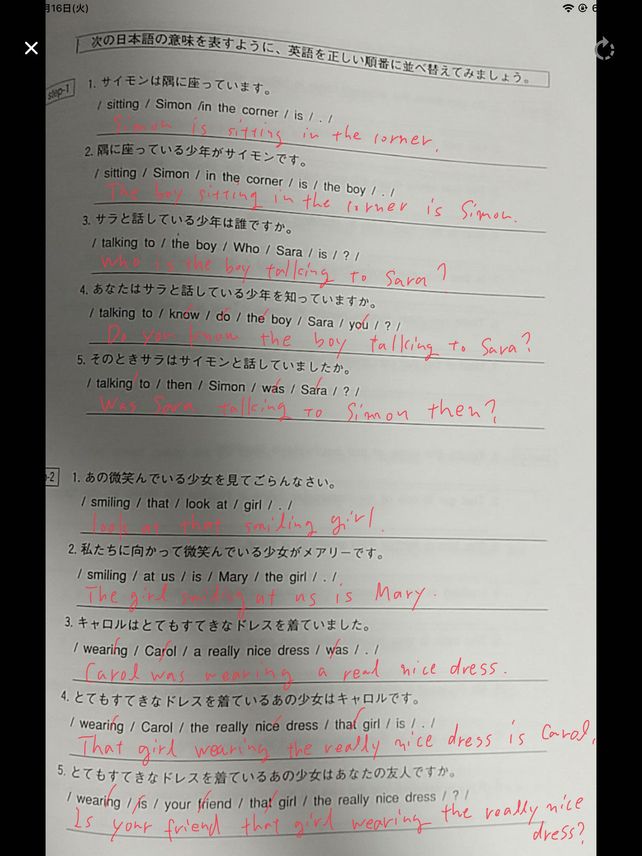 月16日(火)
次の日本語の意味を表すように、英語を正しい順番に並べ替えてみましょう。
step-1
1. サイモンは隅に座っています。
/ sitting / Simon /in the corner / is / . /
Simon is sitting in the corner.
2. 隅に座っている少年がサイモンです。
/ sitting / Simon / in the corner / is / the boy / . /
The boy sitting in the corner is Simon.
3. サラと話している少年は誰ですか。
/ talking to / the boy / Who / Sara / is / ? /
Who is the boy talking to Sara?
4. あなたはサラと話している少年を知っていますか。
/ talking to / know / do / the boy / Sara / you / ? /
Do you know the boy talking to Sara?
5. そのときサラはサイモンと話していましたか。
/ talking to / then / Simon / was / Sara / ? /
Was Sara talking to Simon then?
-2
1. あの微笑んでいる少女を見てごらんなさい。
/ smiling / that / look at / girl / . /
look at that smiling girl.
2. 私たちに向かって微笑んでいる少女がメアリーです。
/ smiling / at us / is / Mary / the girl / . /
The girl smiling at us is Mary.
3. キャロルはとてもすてきなドレスを着ていました。
/ wearing / Carol / a really nice dress / was / . /
Carol was wearing a real nice dress.
4. とてもすてきなドレスを着ているあの少女はキャロルです。
/ wearing / Carol / the really nice dress / that girl / is / . /
That girl wearing the really nice dress is Carol.
5. とてもすてきなドレスを着ているあの少女はあなたの友人ですか。
/ wearing / is / your friend / that girl / the really nice dress / ? /
Is your friend that girl wearing the really nice
dress?